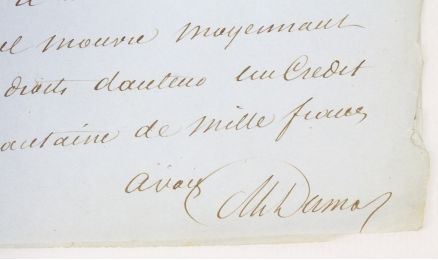 el mouvre moyennant
droits d'auteur un Credit
antaine de Mille francs
avoy
Ah Dumas